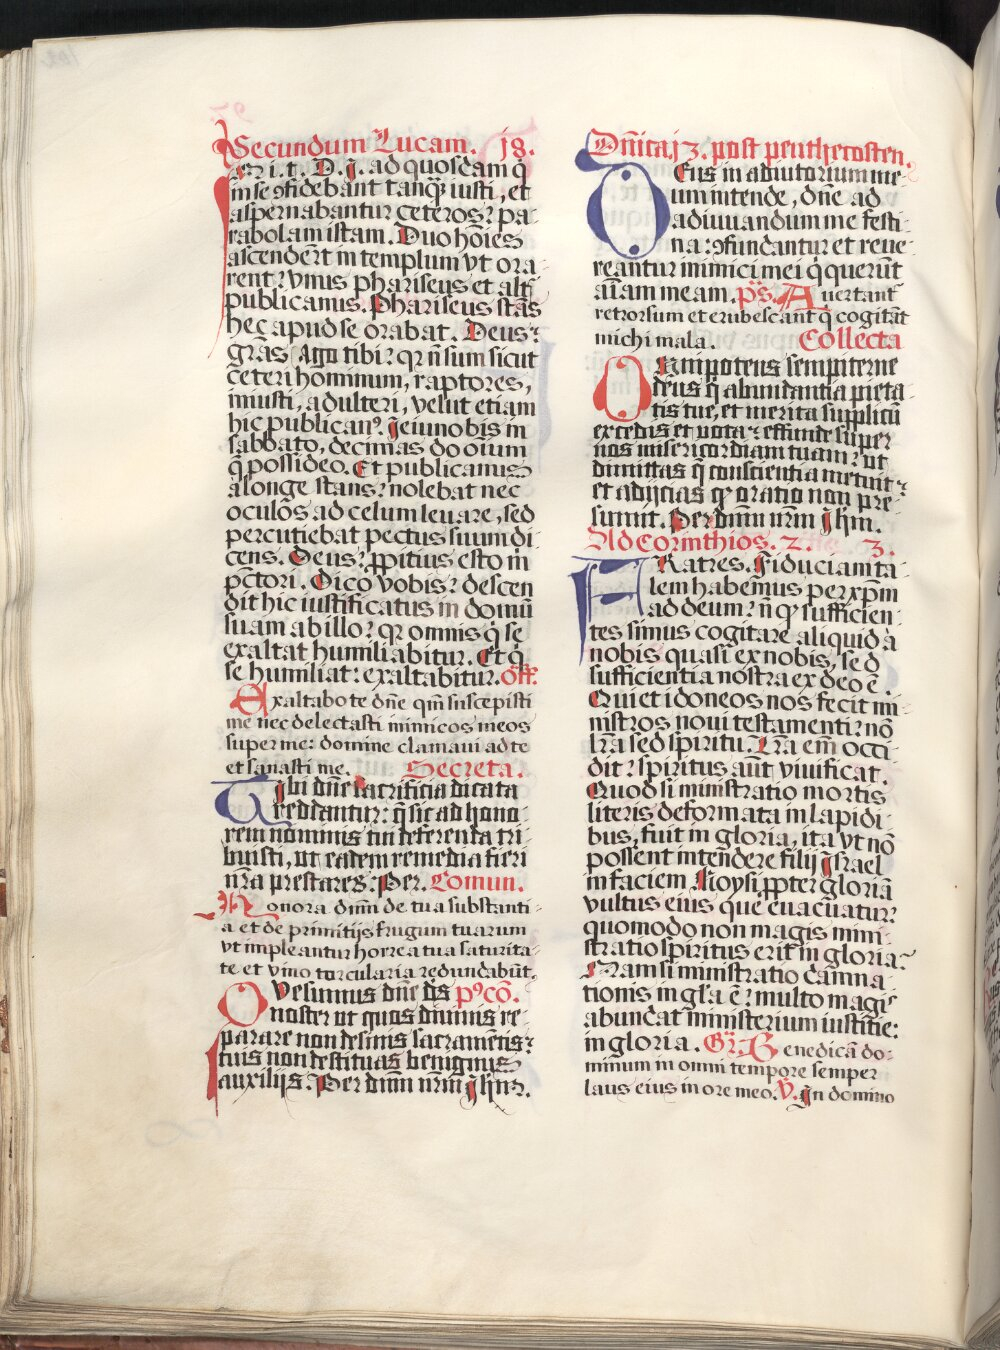 Secundum Lucam. 18.
In i. t. D. J. ad quosdam q̇
in se ꝯfidebant tanq̃ iusti, et
aspernabantur ceteros: pa-
rabolam istam. Duo hoı̃es
ascender̃t in templum vt ora-
rent: vnus phariseus et alt̃
publicanus. Phariseus stãs
hec apud se orabat. Deus:
gr̃as ago tibi: qr ñ sum sicut
ceteri hominum, raptores,
iniusti, adulteri, velut etiam
hic publicanꝰ. Jeiuno bis in
sabbato, decimas do oı̃um
q̃ possideo. Et publicanus
a longe stans: nolebat nec
oculos ad celum leuare, sed
percutiebat pectus suum di-
cens. Deus: ꝓpitius esto m̃
pc̃tori. Dico vobis: descen
dit hic iustificatus in domũ
suam ab illo: qr omnis q̇ se
exaltat humiliabitur. Et q̇
se humiliat: exaltabitur. Off.
Exaltabo te dñe qm̃ suscepisti
me nec delectasti inimicos meos
super me: domine clamaui ad te
et sanasti me. Secreta.
Tibi dñe sacrificia dicata
reddantur: q̃ sic ad hono-
rem nominis tui deferenda tri
buisti, ut eadem remedia fieri
nr̃a prestares: Per. Comun.
Honora dñm de tua substanti-
a et de primitijs frugum tuarum
vt impleantur horrea tua saturita-
te et vino torcularia redundabũt.
Quesumus dñe ds pꝰcõ.
noster ut quos diuinis re-
parare non desinis sacramentis:
tuis non destituas benignus
auxilijs. Per dñm nr̃m Jhm̃.
Dñica 13. post penthecosten.
Deus in adiutorium me-
um intende, dñe ad
adiuuandum me festi
na: ꝯfundantur et reue-
reantur inimici mei q̇ querũt
aı̃am meam. ps. Auertant̃
retrorsum et erubescant q̇ cogitãt
michi mala. Collecta
Omnipotens sempiterne
deus q̇ abundantia pieta-
tis tue, et merita supplicũ
excedis et vota: effunde super
nos misericordiam tuam: ut
dimittas q̃ conscientia metuit:
et adijcias qꝫ oratio non pre-
sumit. Per dñm nr̃m Jhm̃.
Ad Corinthios. 2. 3.
Fratres. Fiduciam ta-
lem habemus per xp̃m
ad deum: ñ qꝫ sufficien-
tes simus cogitare aliquid a
nobis quasi ex nobis, sed
sufficientia nostra ex deo ẽ.
Qui et idoneos nos fecit mi-
nistros noui testamenti: nõ
lr̃a sed spiritu. Lr̃a em̃ occi-
dit: spiritus aũt viuificat.
Quod si ministratio mortis
literis deformata in lapidi-
bus, fuit in gloria, ita vt nõ
possent intendere filij Jsrael
in faciem Moysi, ꝓpter gloriã
vultus eius que euacuatur:
quomodo non magis mini-
stratio spiritus erit in gloria?
Nam si ministratio damna-
tionis in gl̃a ẽ: multo magis
abundat ministerium iustitie:
in gloria. Gr̃. Benedicã do-
minum in omni tempore semper
laus eius in ore meo. V. In domino